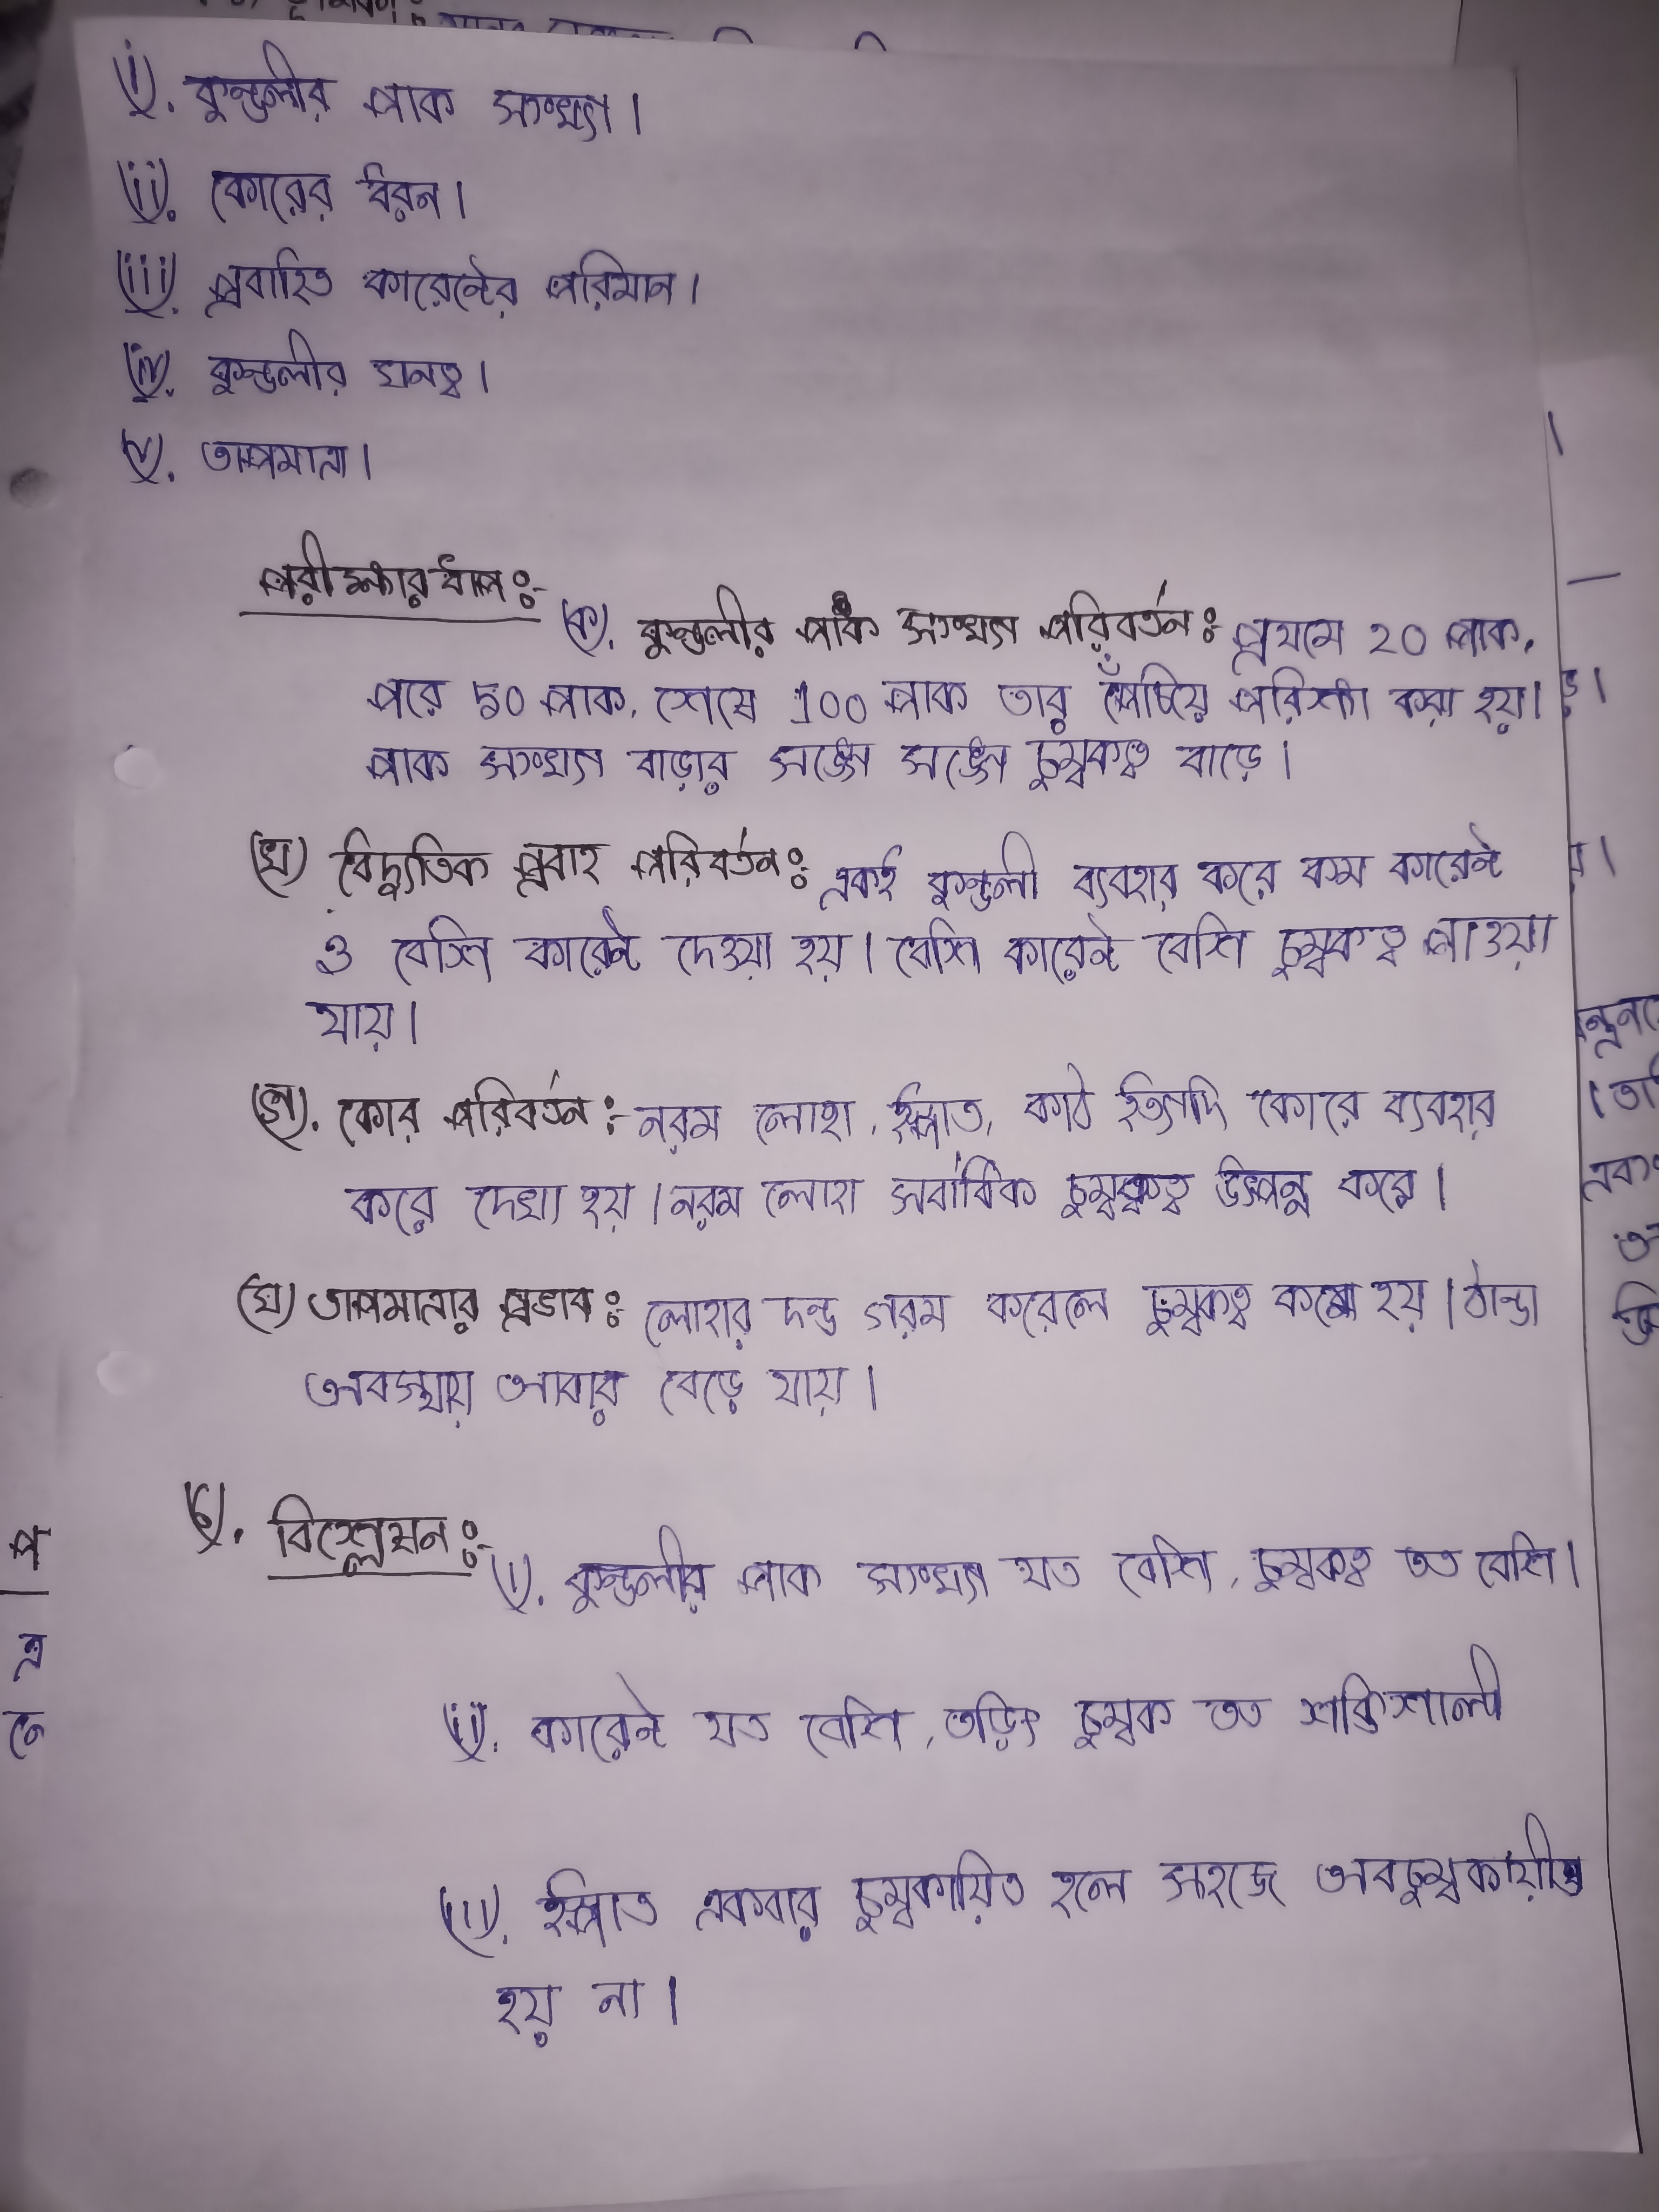 (i). কুন্ডলীর পাক সংখ্যা।
(ii). কোরের ধরন।
(iii). প্রবাহিত কারেন্টের পরিমান।
(iv). কুন্ডলীর ঘনত্ব।
(v). তাপমাত্রা।
পরীক্ষার ধাপ :-
(ক). কুন্ডলীর পাক সংখ্যা পরিবর্তন : প্রথমে 20 পাক,
পরে ৫০ পাক, শেষে 100 পাক তার পেঁচিয়ে পরিক্ষা করা হয়।
পাক সংখ্যা বাড়ার সঙ্গে সঙ্গে চুম্বকত্ব বাড়ে।
(খ) বিদ্যুতিক প্রবাহ পরিবর্তন : একই কুন্ডলী ব্যবহার করে কম কারেন্ট
ও বেশি কারেন্ট দেওয়া হয়। বেশি কারেন্ট বেশি চুম্বকত্ব পাওয়া
যায়।
(গ). কোর পরিবর্তন :- নরম লোহা, ইস্পাত, কাঠ ইত্যাদি কোরে ব্যবহার
করে দেখা হয়। নরম লোহা সর্বাধিক চুম্বকত্ব উৎপন্ন করে।
(ঘ) তাপমাত্রার প্রভাব : লোহার দন্ড গরম করেলে চুম্বকত্ব কমে হয়। ঠান্ডা
অবস্থায় আবার বেড়ে যায়।
৮). বিশ্লেষন :-
(i). কুন্ডলীর পাক সংখ্যা যত বেশি, চুম্বকত্ব তত বেশি।
(ii). কারেন্ট যত বেশি, তড়িৎ চুম্বক তত শক্তিশালী
(iii). ইস্পাত একবার চুম্বকায়িত হলে সহজে অবচুম্বকায়ীত
হয় না।